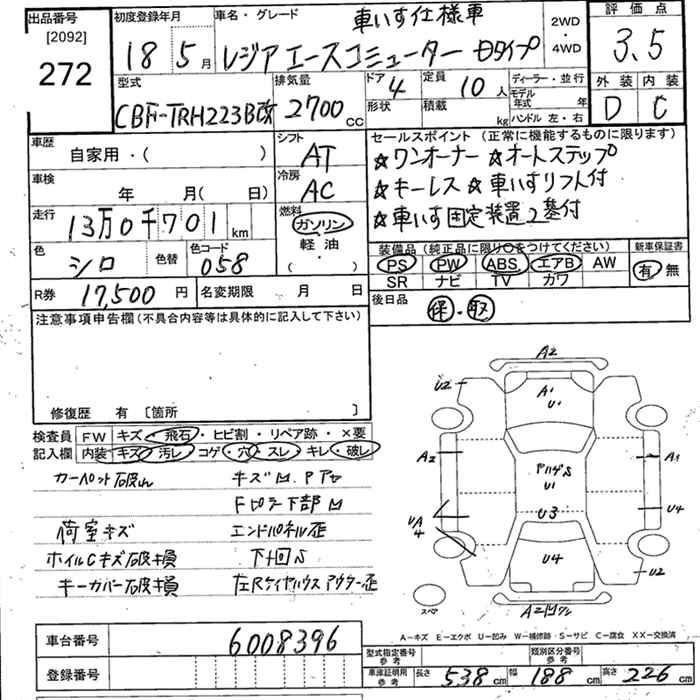 出品番号
[2092]
272
初度登録年月
18 5月
車名・グレード
車いす仕様車
レジアエースコミューター Dタイプ
2WD
・
4WD
評価点
3.5
外装 内装
D C
型式
CBF-TRH223B改
排気量
2700 CC
ドア 4
形状
定員 10人
積載 kg
ディーラー・並行
モデル年式 年
ハンドル 左・右
車歴
自家用・( )
シフト
AT
車検
年 月( 日)
冷房
AC
走行
13万0千701km
燃料
ガソリン
軽油
( ・ )
色
シロ
色替
色コード
058
R券 17,500円
名変期限 月 日
セールスポイント (正常に機能するものに限ります)
☆ワンオーナー ☆オートステップ
☆キーレス ☆車いすリフト付
☆車いす固定装置2基付
装備品 (純正品に限り○をつけてください)
PS PW ABS エアB AW
SR ナビ TV カワ
新車保証書
有 無
後日品
保・取
注意事項申告欄(不具合内容等は具体的に記入して下さい)
修復歴 有 〔箇所 〕
検査員記入欄
FW キズ・飛石・ヒビ割・リペア跡・×要
内装 キズ・汚レ・コゲ・穴・スレ・キレ・破レ
カーペット破れ
キズ凹、Pアセ
Fピラー下部凹
荷室キズ
エンドパネル歪
ホイルCキズ破損
下廻S
キーカバー破損
左Rタイヤハウスアウター歪
A2
U2
A1
U1
A2
A1
U1
U3
U4
UA
4
U4
U2
スペ
A2
A-キズ E-エクボ U-凹み W-補修跡・S-サビ C-腐食 XX-交換済
車台番号 6008396
登録番号
型式指定番号
参考
類別区分番号
参考
車庫証明用
参考
長さ 538 cm 幅 188 cm 高さ 226 cm